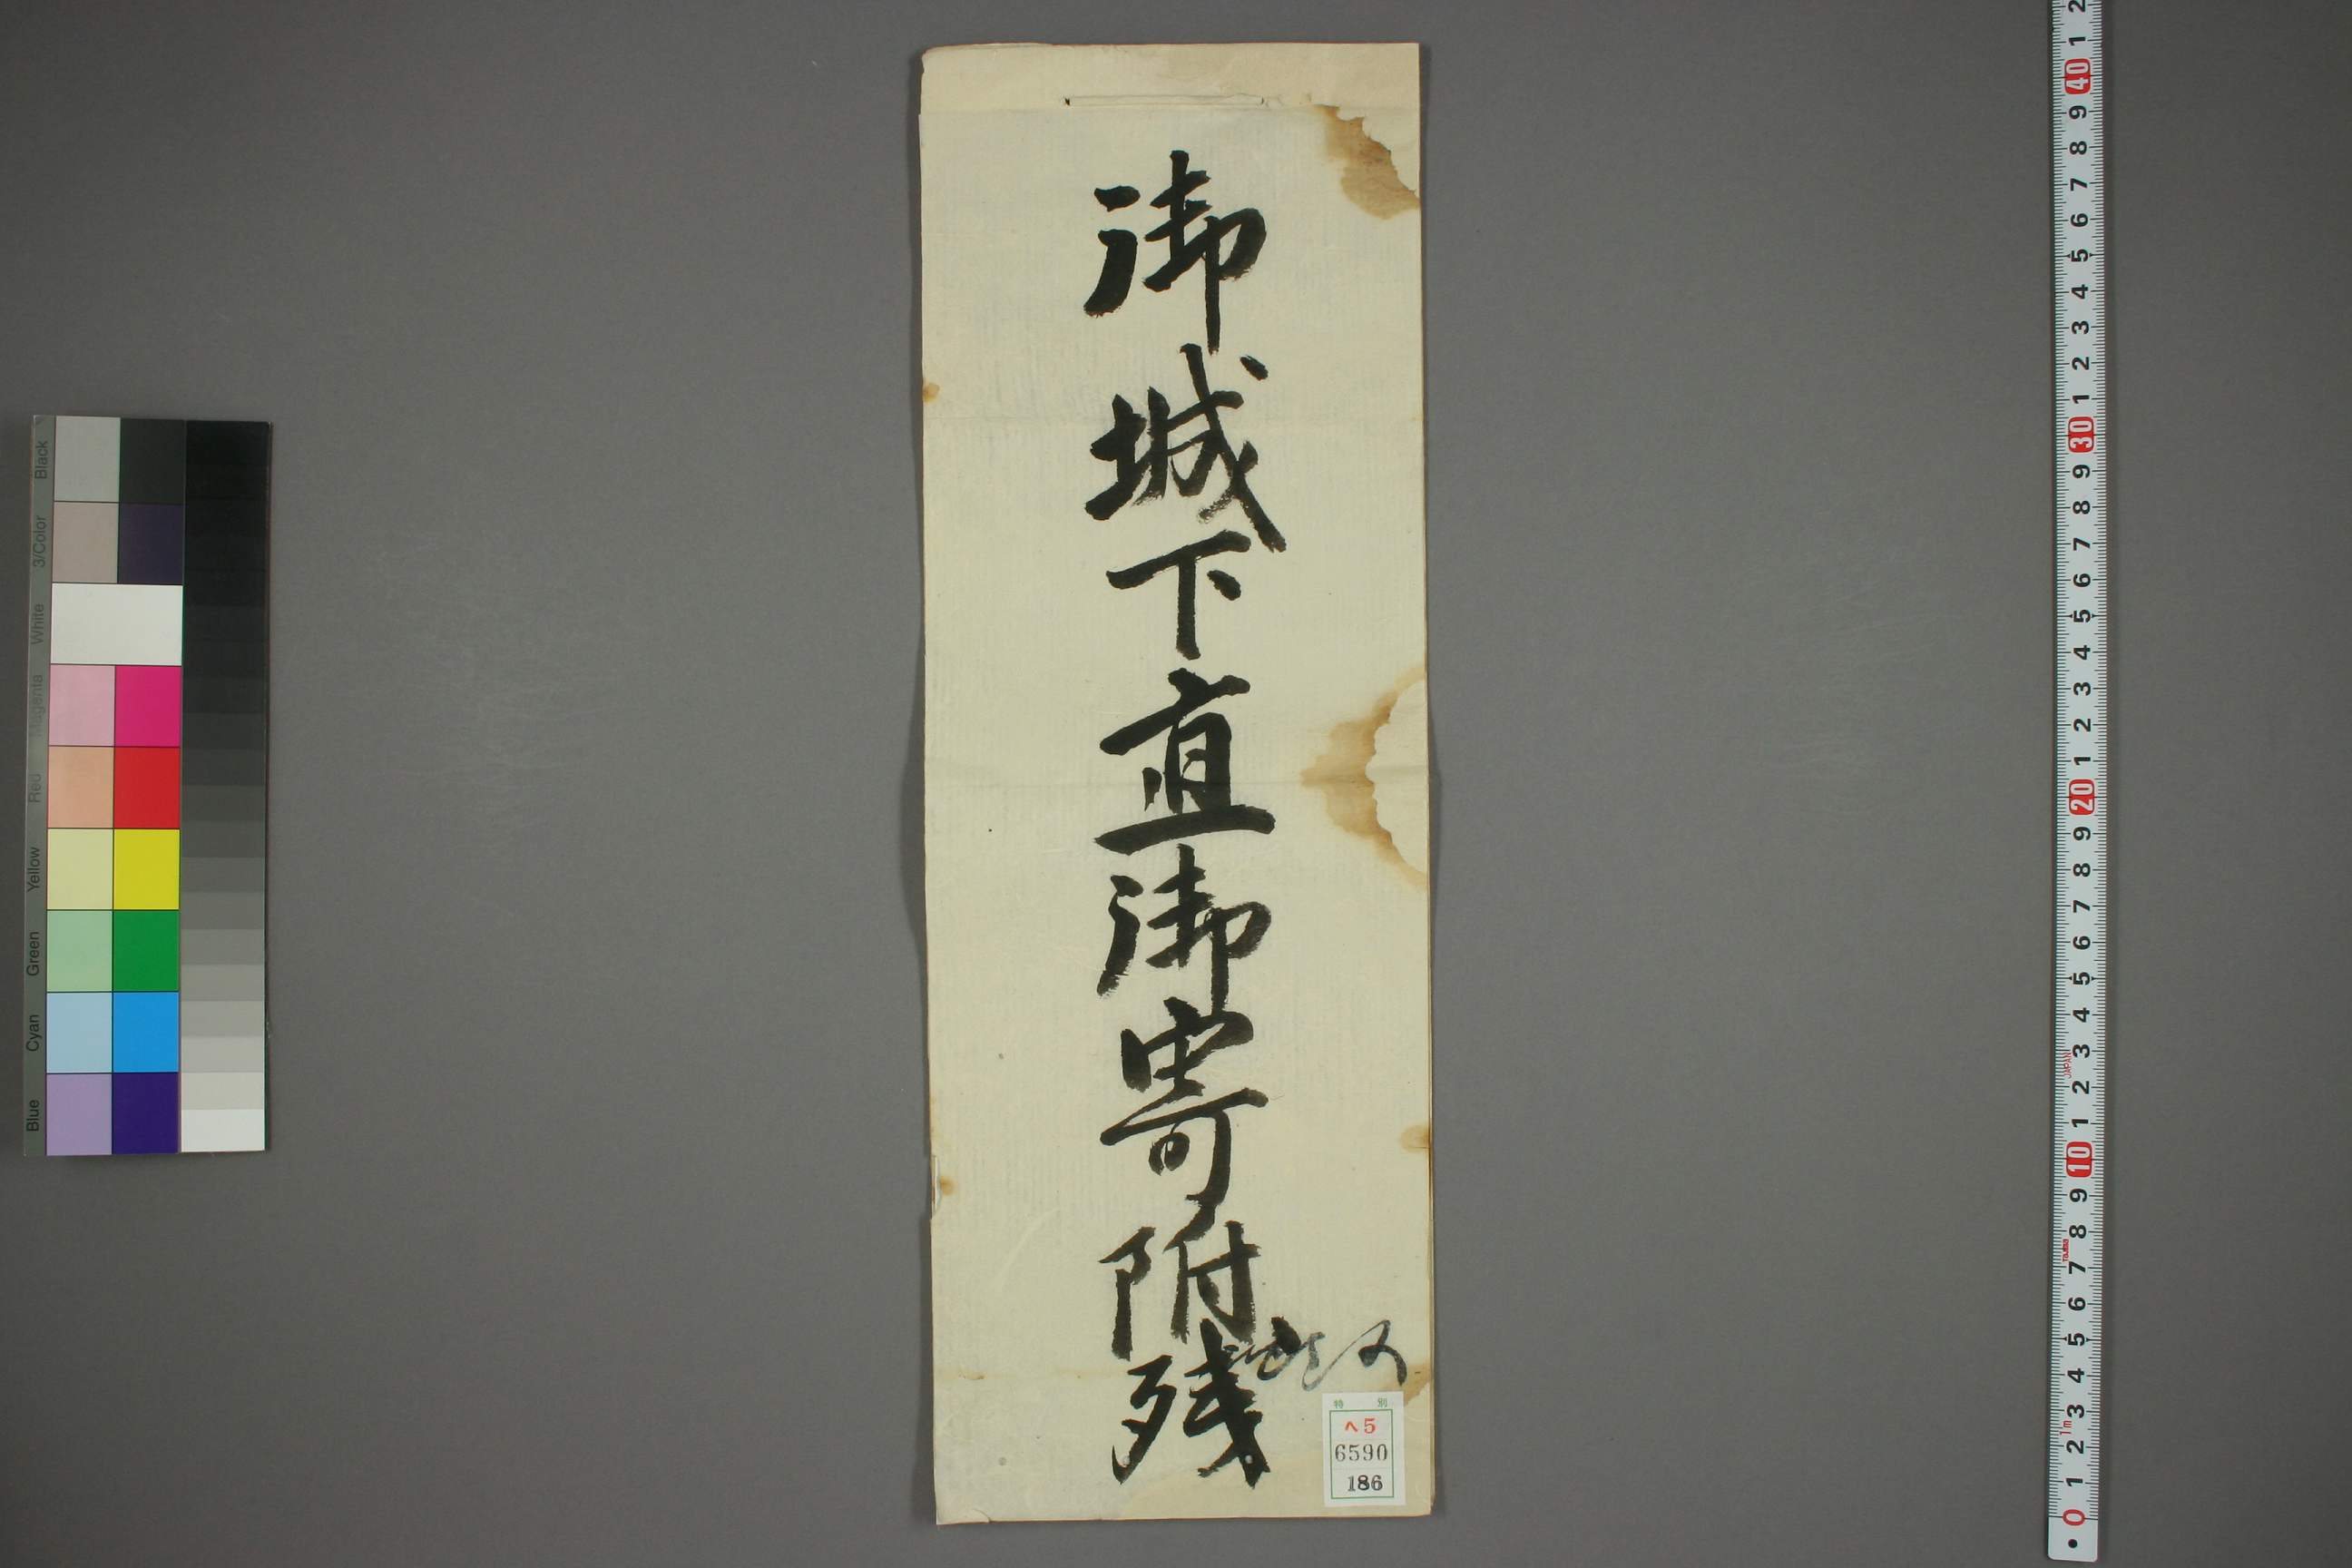 御城下直御寄附残
特別
ヘ5
6590
186
Black
3/Color
White
Magenta
Red
Yellow
Green
Cyan
Blue
2 1 40 9 8 7 6 5 4 3 2 1 30 9 8 7 6 5 4 3 2 1 20 9 8 7 6 5 4 3 2 1 10 9 8 7 6 5 4 3 2 1 0
JAPAN
1m